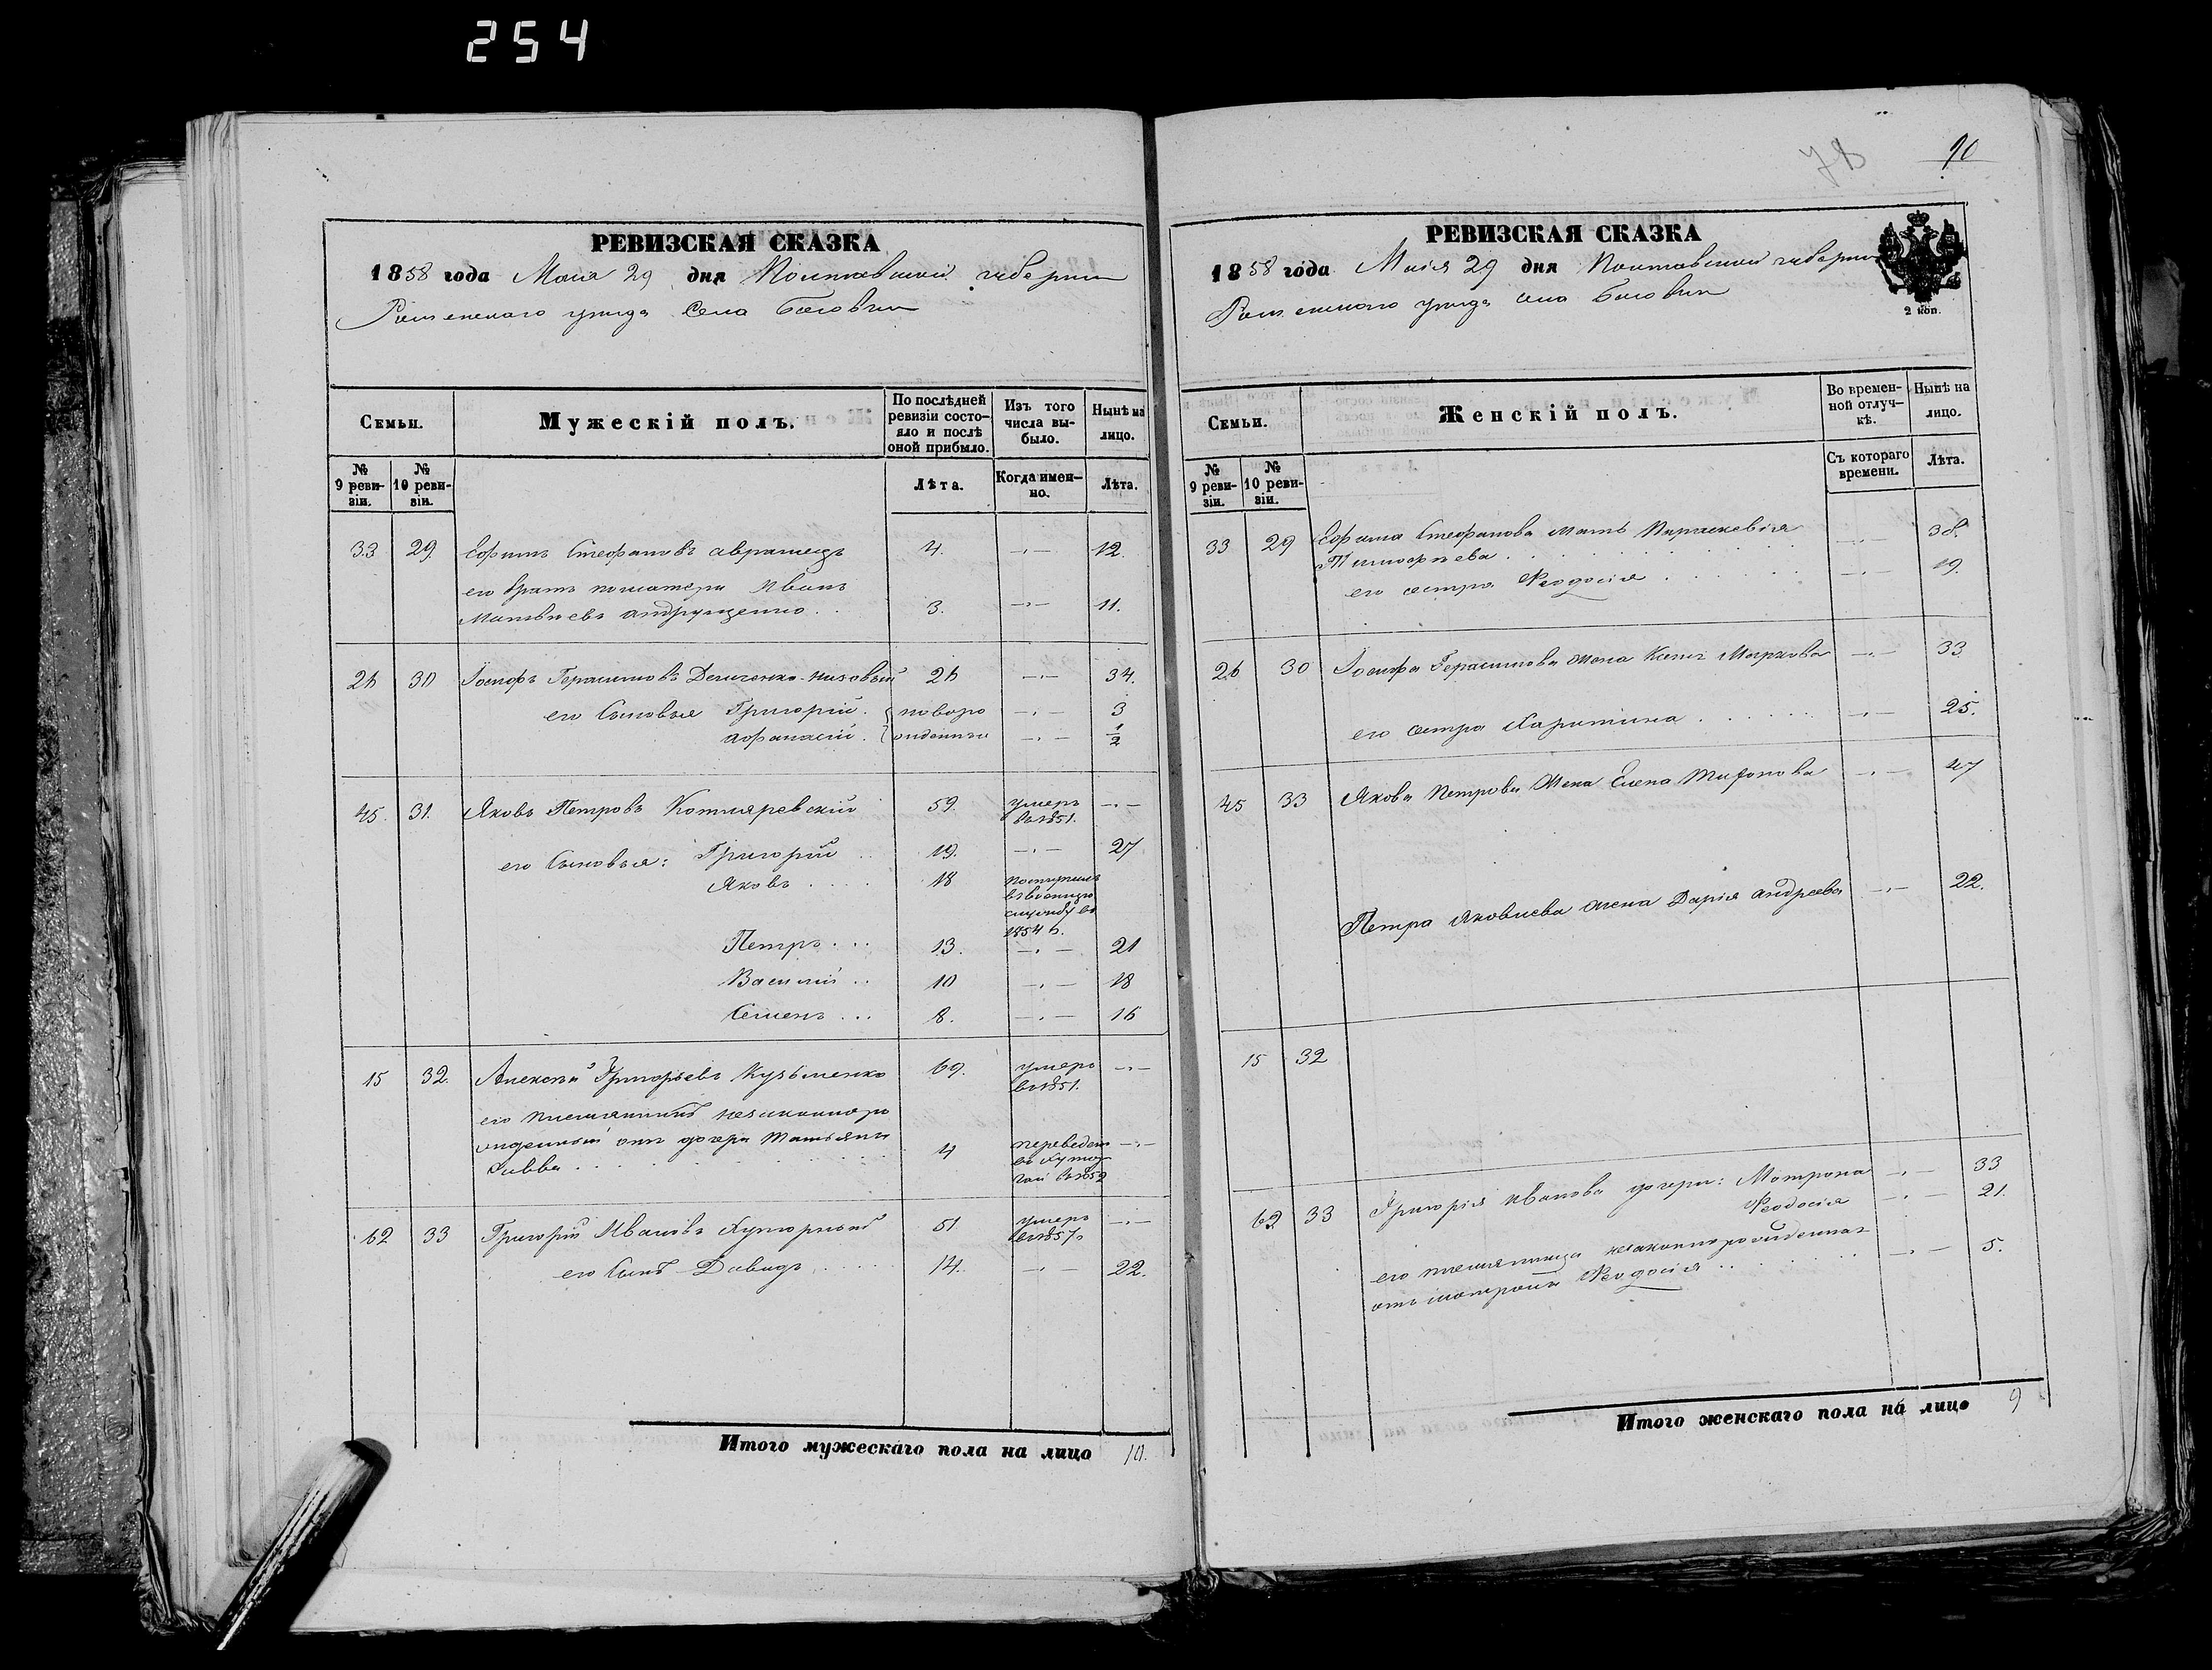 254
РЕВИЗСКАЯ СКАЗКА
1858 года Мая 29 дня Полтавской губернии
Роменскаго уезда Села Беловки
Семьи.
Мужескій полъ.
По послѣдней ревизіи состо-
яло и послѣ
оной прибыло.
Изъ того
числа вы-
было.
Нынѣ на
лицо.
№
9 реви-
зіи.
№
10 реви-
зіи.
Лѣта.
Когда имен-
но.
Лѣта.
33 29 Ефимъ Стефановъ 4. 12.
его братъ по матери Иванъ
Матвѣевъ Андрущенко . . 3. 11.
26 30 Іосифъ Герасимовъ 26 34.
его Сыновья Григорій . новоро 3
Афанасій . жденные 1/2
45. 31. Яковъ Петровъ Котляревскій 59. умеръ
въ 1851.
его Сыновья: Григорій . . 19. 27
Яковъ . . . . 18 поступилъ
въ военную
службу въ
1854 г.
Петръ . . . 13. 21
Василій . . 10 18
Семенъ . . . 8. 16
15 32. Алексѣй Григорьевъ Кузьменко 69. умеръ
въ 1851.
его племянникъ незаконноро
жденный отъ дочери Татьяны
Савва . . . . 4 переведенъ
62 33 Григорій Ивановъ Хуторный 51. умеръ
въ 1857.
его Сынъ Давидъ . . . . 14. 22.
Итого мужескаго пола на лицо 10.
78 90
РЕВИЗСКАЯ СКАЗКА
1858 года Маія 29 дня Полтавской губерніи
Роменскаго уезда села Беловки
2 коп.
Семьи.
Женскій полъ.
Во времен-
ной отлуч-
кѣ.
Нынѣ на
лицо.
№
9 реви-
зіи.
№
10 реви-
зіи.
Съ котораго
времени.
Лѣта.
33 29 Ефима Стефанова мать Параскевія 38.
Тимофѣева . . . .
его сестра Феодосія . . . . 19.
26 30 Іосифа Герасимова жена Маркова 33
его сестра Харитина . . . . 25.
45 33 Якова Петрова Жена Елена 47
Петра Яковлева жена Дарія Андреева 22.
15 32
62 33 Григорія Иванова дочери: Мотрона 33
Феодосія 21.
его племянница незаконнорожденная
отъ Мотроны Феодосія . . . 5.
Итого женскаго пола на лицо 9